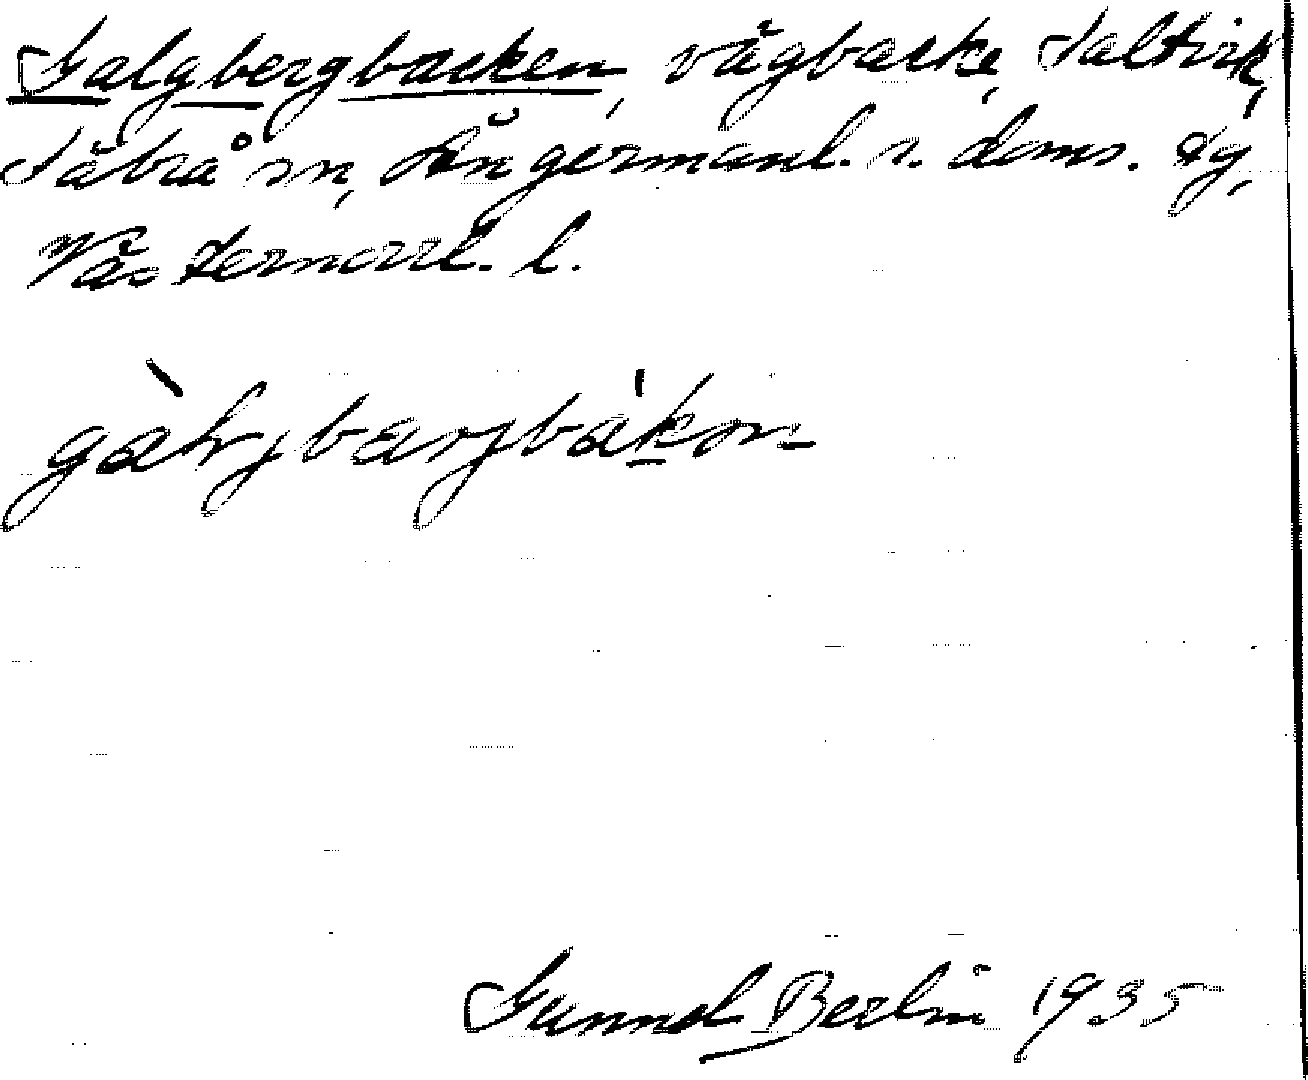 Galgbergbacken, vägbacke, Saltvik,
Säbrå sn, Ångermanl. s. doms. tg,
Västernorrl. l.
gàlvjbærjbákən
Gunnel Berlin 1935